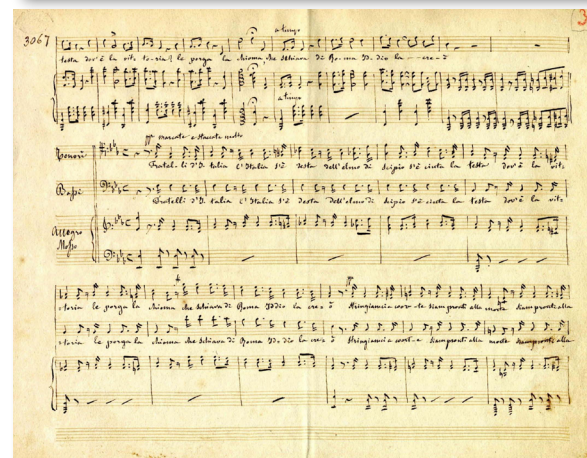 3067
3
a tempo
testa dov'è la vitto-ria? le porga la chioma che schiava di Roma Id-dio la -- cre-ò
a tempo
pp marcate e staccate molto
Tenori
Fratel-li d'I-talia l'Italia s'è desta dell'elmo di Scipio s'è cinta la testa dov'è la vit-
Bassi
Fratelli d'I-talia l'Italia s'è desta dell'elmo di Scipio s'è cinta la testa dov'è la vit-
Allegro
Mosso
pp
toria le porga la chioma che schiava di Roma Iddio la cre-ò Stringiamci a coor-te siam pronti alla morte siam pronti alla
toria le porga la chioma che schiava di Roma Id-dio la cre-ò Stringiamci a coort-e siam pronti alla morte siam pronti alla